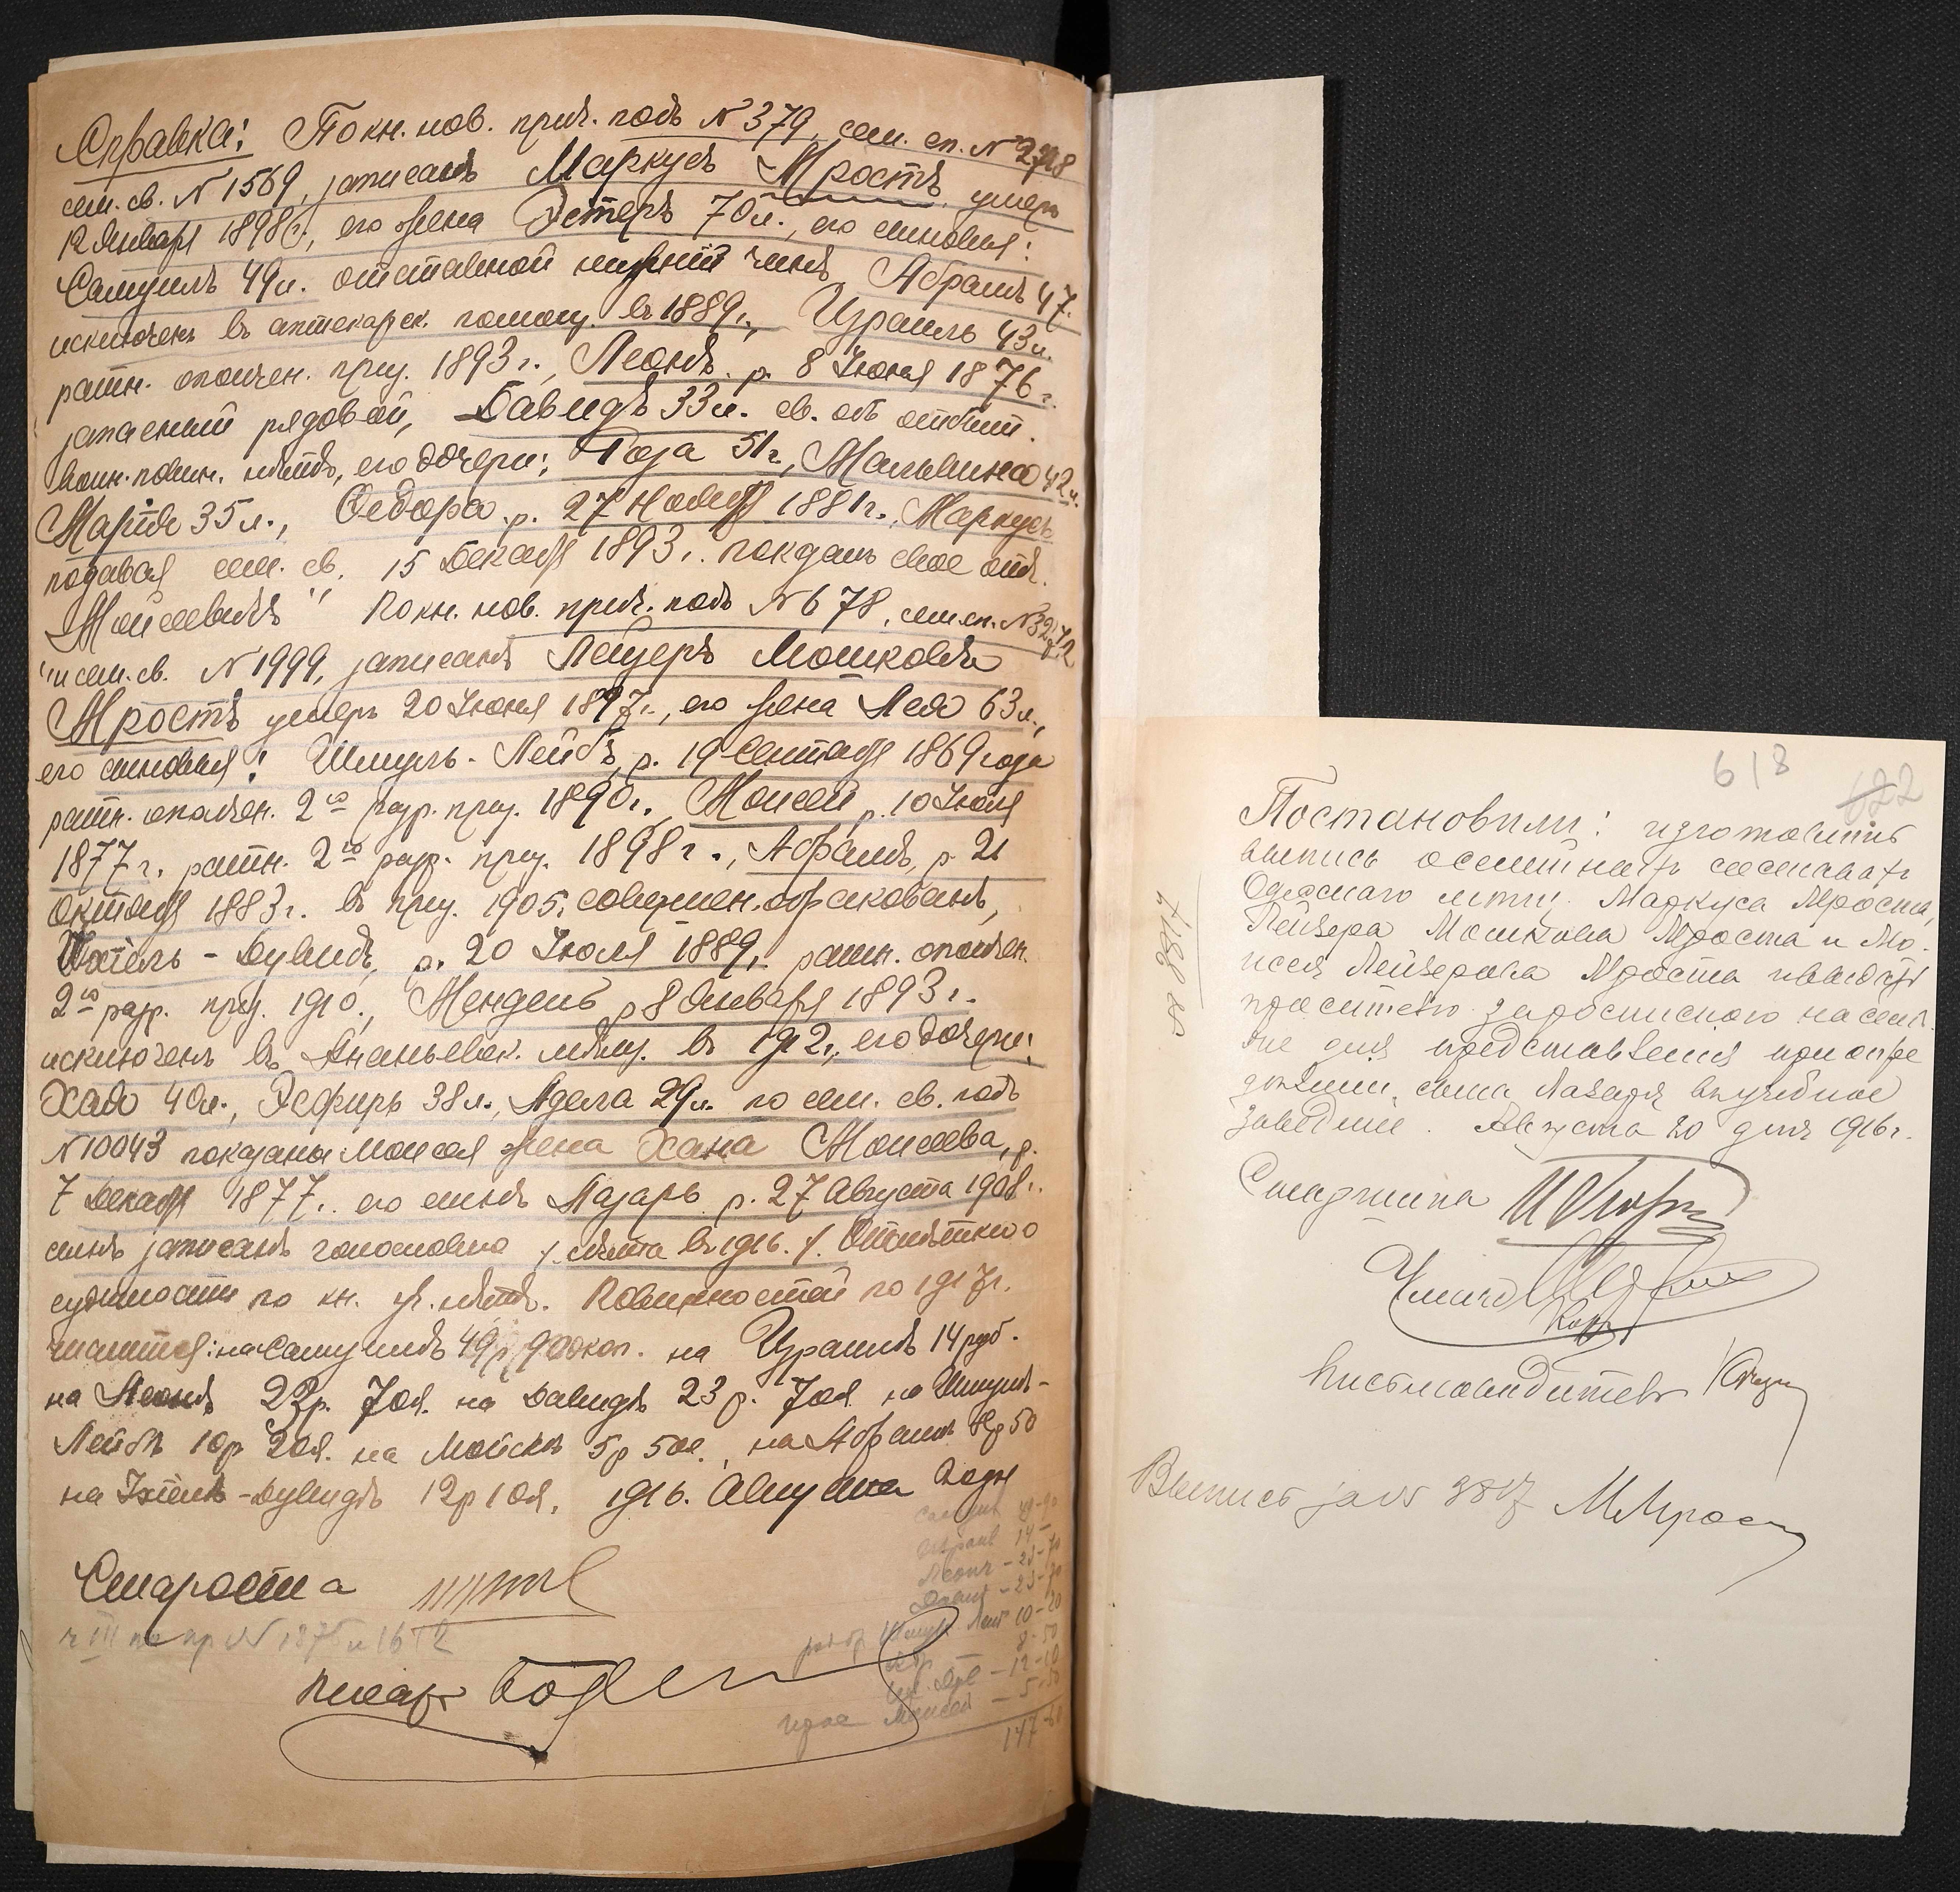 Справка: По кн. нов. прил. подъ № 379, сем. сп. № 2718
сем. св. № 1569, записанъ Маркусъ Мростъ умеръ
12 Января 1898 г., его жена Эстеръ 70 л., его сыновья:
Самуилъ 49 л. отставной нижній чинъ, Абрамъ 47.
исключенъ въ аптекарск. помощ. въ 1889 г., Израиль 43 л.
ратн. ополчен. приз. 1893 г., Леонъ р. 8 Іюня 1876 г.
запасный рядовой, Давидъ 33 л. св. объ отбыт.
воин. повин. нѣтъ, его дочери: Роза 51 г., Мальвина 42 л.
Марія 35 л., Федора р. 27 Ноября 1881 г., Маркусъ
подавая сем. св. 15 Декабря 1893 г. показалъ свое отч.
"Мойсеевичъ" По кн. нов. прил. подъ № 678, сем. сп. № 3272
и сем. св. № 1999, записанъ Лейзеръ Мошковъ
Мростъ умеръ 20 Іюня 1897 г., его жена Лея 63 л.,
его сыновья: Шмуль-Лейбъ, р. 19 Сентября 1869 года
ратн. ополчен. 2го разр. приз. 1890 г., Моисей, р. 10 Іюля
1877 г. ратн. 2го разр. приз. 1898 г., Абрамъ, р. 21
Октября 1883 г. въ приз. 1905. совершен. обракованъ,
Іхіель-Дувидъ, р. 20 Іюля 1889, ратн. ополчен.
2го разр. приз. 1910, Мендель р 8 Января 1893 г.
исключенъ въ Ананьевск. мѣщ. въ 1912 г., его дочери:
Хая 40 л., Эсфирь 38 л., Адела 29 л. по сем. св. подъ
№ 10043 показаны Моисея жена Хана Моисеева, р.
7 Декабря 1877 г. его сынъ Лазарь р. 27 Августа 1908 г.
сынъ записанъ голословно /. смѣта въ 1916. /. Отмѣтки о
судимости по кн. уг. нѣтъ. Повинностей по 1917 г.
числится: на Самуилѣ 49 р. 90 коп. на Израилѣ 14 руб.
на Леонѣ 23 р. 70 к. на Давидѣ 23 р. 70 к. на Шмулѣ-
Лейбѣ 10 р 20 к. на Мойсеѣ 5 р 50 к., на Абрамѣ 8 р 50
на Іхіелѣ-Дувидѣ 12 р 10 к. 1916. Августа 20 дня
Староста
Писарь
Израиль 14 –
Леонъ – 23-70
Давид – 23-70
Шмуль Лейб 10-20
8-50
12-10
Моисей – 5-50
147-60
618
622
Постановили: изготовить
выпись о семейномъ составѣ
Одесскаго мѣщ. Маркуса Мроста,
Лейзера Мошкова Мроста и Мо-
исея Лейзерова Мроста и выдать
просителю за росписью на семъ
же для представленія при опре-
дѣленіи сына Лазаря въ учебное
заведеніе. Августа 20 дня 1916 г.
Старшина
Письмоводитель
Выпись за № 3817 М Мрост